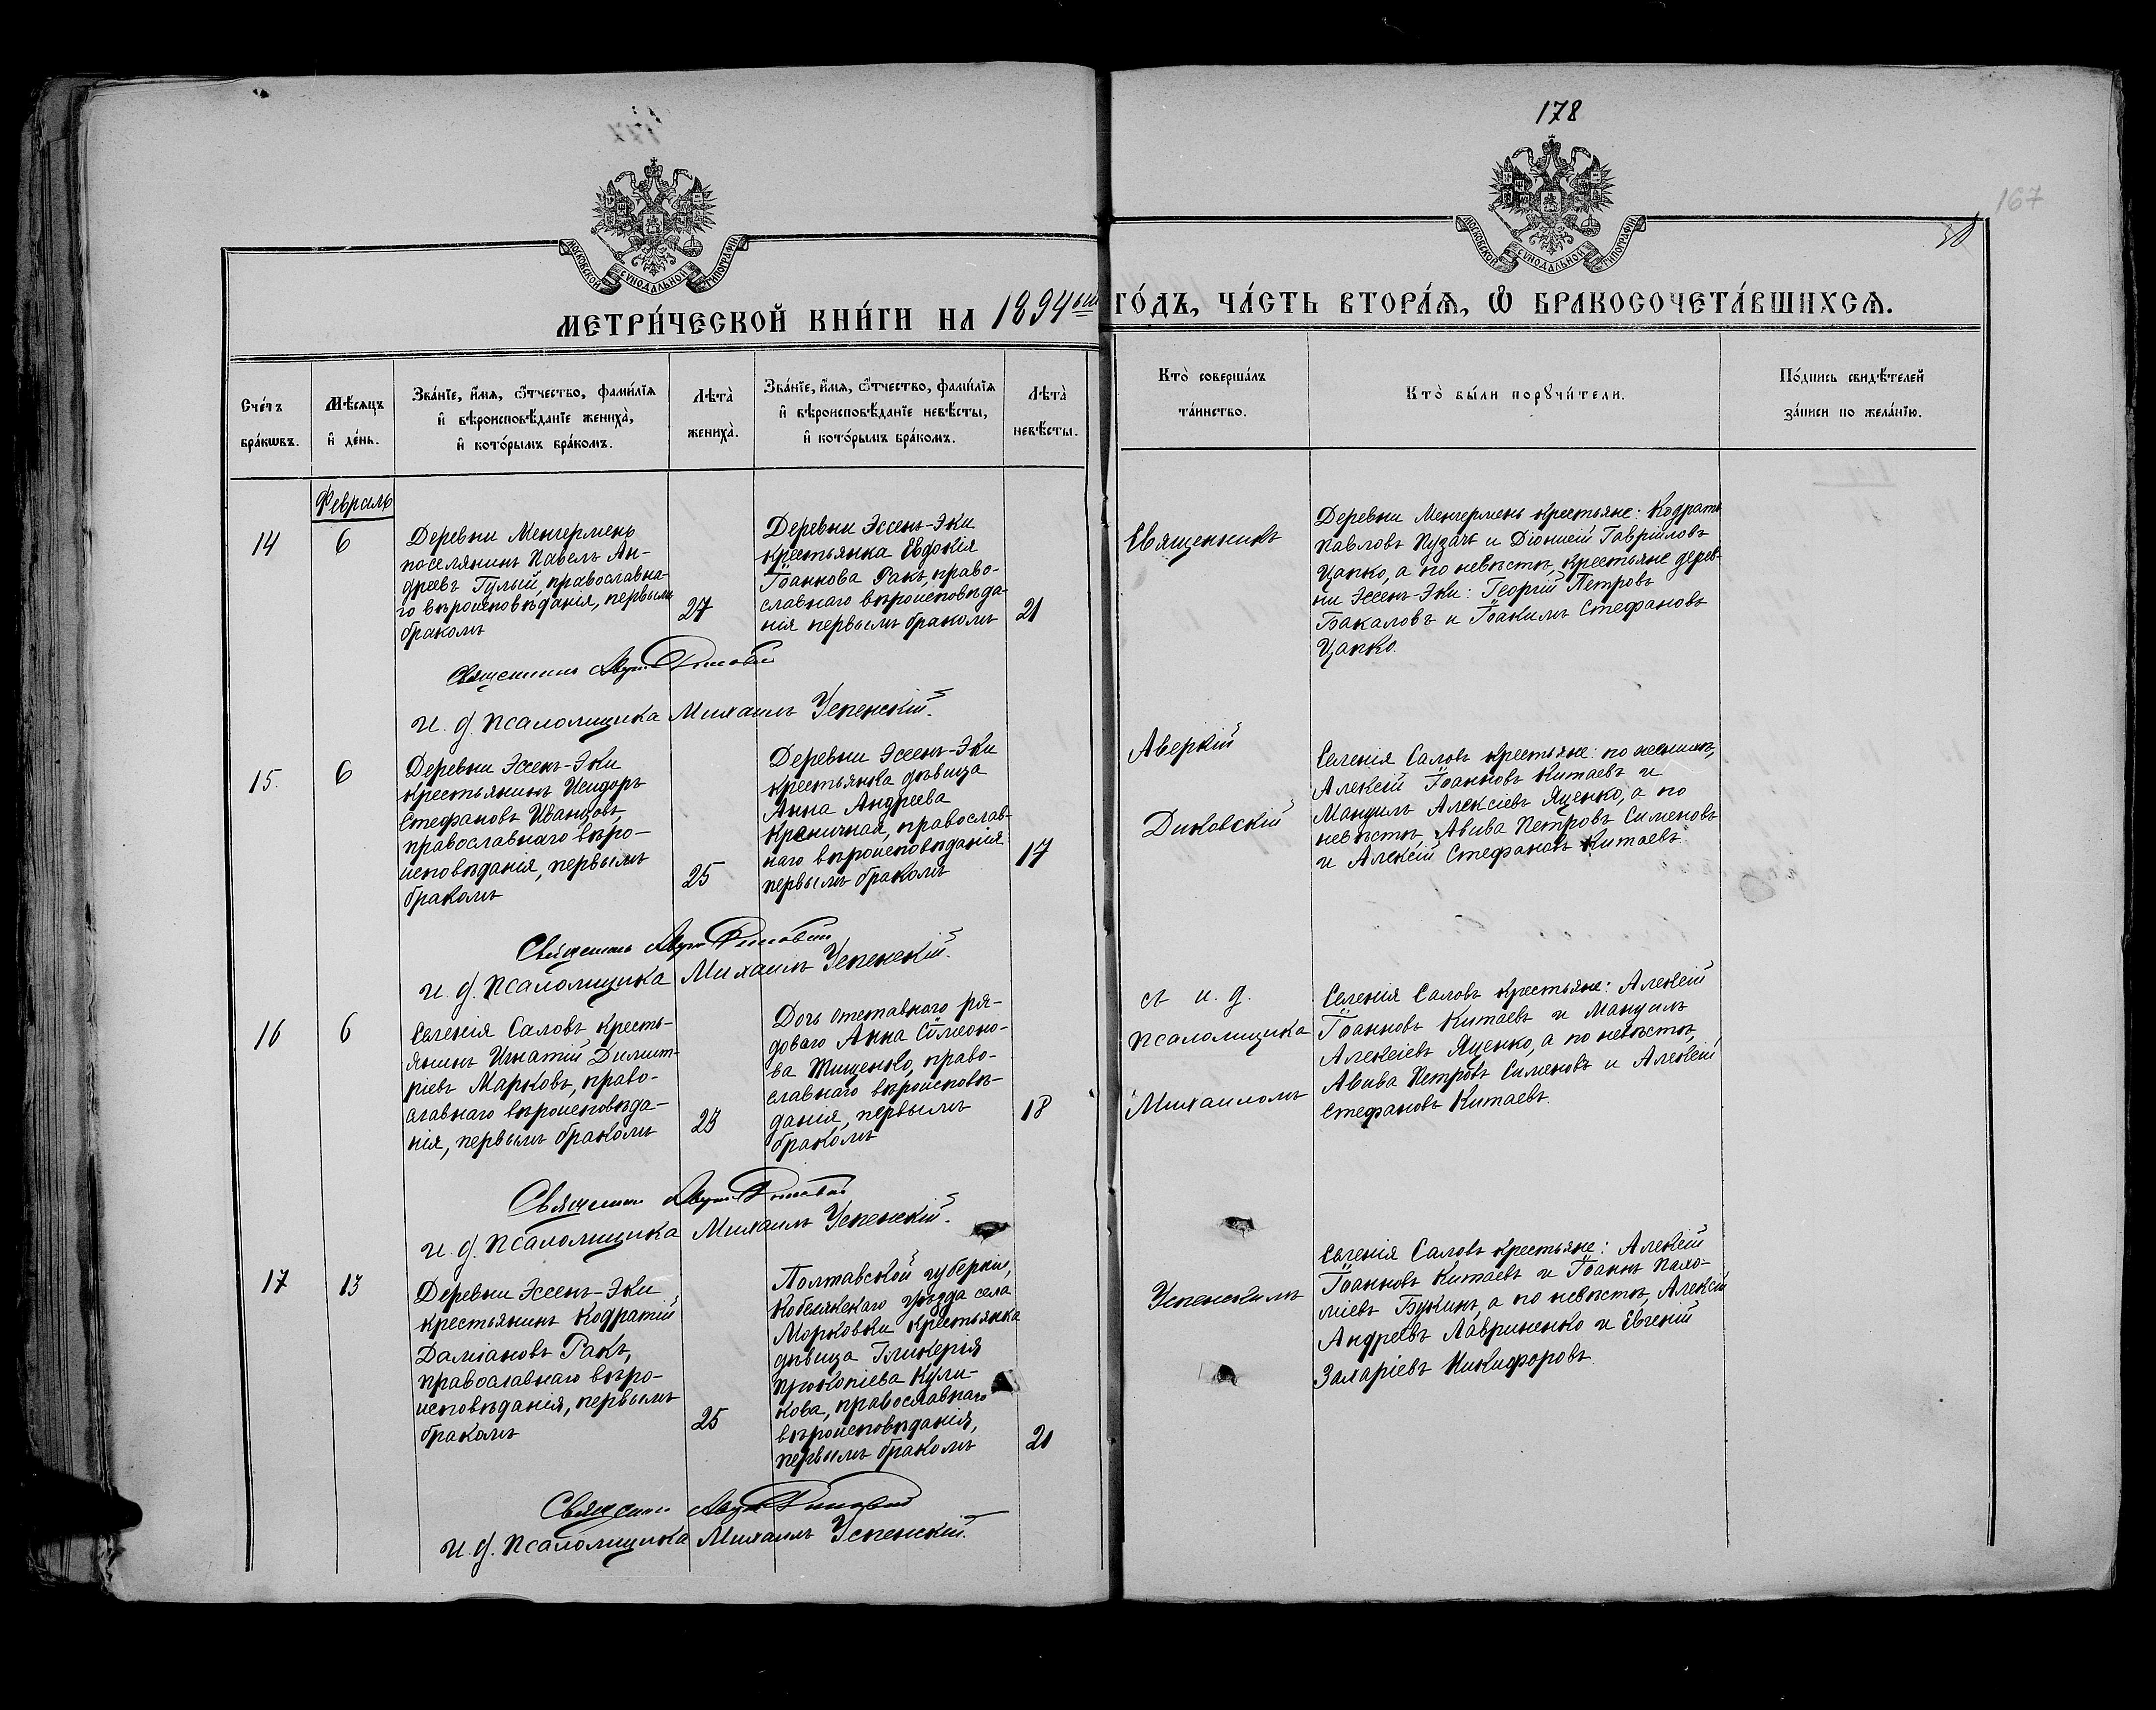 178
167
МОСКОВСКОЙ СѴНОДАЛЬНОЙ ТИПОГРАФІИ
МОСКОВСКОЙ СѴНОДАЛЬНОЙ ТИПОГРАФІИ
МЕТРИ́ЧЕСКОЙ КНИ́ГИ НА 1894 ый ГО́ДЪ, ЧА́СТЬ ВТОРА́Ѧ, Ѽ БРАКОСОЧЕТА́ВШИХСѦ.
Сче́тъ бра́кѡвъ.
Мѣ́сяцъ и҆ де́нь.
Зва́нїе, и҆́мя, ѻ҆́тчество, фами́лїя
и҆ вѣроисповѣ́данїе жениха̀,
и҆ кото́рымъ бра́комъ.
Лѣта̀ жениха̀.
Зва́нїе, и҆́мя, ѻ҆́тчество, фами́лїя
и҆ вѣроисповѣ́данїе невѣ́сты,
и҆ кото́рымъ бра́комъ.
Лѣта̀ невѣ́сты.
Кто̀ соверша́лъ
та́инство.
Кто̀ бы́ли порꙋчи́тели.
По́дпись свидѣ́телей
за́писи по жела́нїю.
Февраль
14
6
Деревни Менгермень
поселянинъ Павелъ Ан-
дреевъ Гулый, православна-
го вѣроисповѣданія, первымъ
бракомъ
27
Деревни Эссенъ-Эки
крестьянка Евдокія
Іоаннова Ракъ, право-
славнаго вѣроисповѣда-
нія первымъ бракомъ
21
Священникъ
Деревни Менгермень крестьяне: Кодратъ
Павловъ Пузачъ и Діонисій Гавріиловъ
Цапко, а по невѣстѣ, крестьяне дерев-
ни Эссенъ-Эки: Георгій Петровъ
Бакаловъ и Іоакимъ Стефановъ
Цапко.
Священникъ
И. д. псаломщика Михаилъ Успенскій.
15.
6
Деревни Эссенъ-Эки
крестьянинъ Исидоръ
Стефановъ Иванцовъ,
православнаго вѣро-
исповѣданія, первымъ
бракомъ
25
Деревни Эссенъ-Эки
крестьянка дѣвица
Анна Андреева
Краничная, православ-
наго вѣроисповѣданія
первымъ бракомъ
17
Аверкій
Диковскій
Селенія Саловъ крестьяне: по женихѣ,
Алексій Іоанновъ Китаевъ и
Мануилъ Алексіевъ Яценко, а по
невѣстѣ, Авива Петровъ Сименовъ
и Алексій Стефановъ Китаевъ.
Священникъ
И. д. псаломщика Михаилъ Успенскій.
16
6
Селенія Саловъ кресть-
янинъ Игнатій Димит-
ріевъ Марковъ, право-
славнаго вѣроисповѣда-
нія, первымъ бракомъ
23
Дочь отставнаго ря-
доваго Анна Сѵмеоно-
ва Тищенко, право-
славнаго вѣроисповѣ-
данія, первымъ
бракомъ
18
съ и. д.
псаломщика
Михаиломъ
Селенія Саловъ крестьяне: Алексій
Іоанновъ Китаевъ и Мануилъ
Алексіевъ Яценко, а по невѣстѣ,
Авива Петровъ Сименовъ и Алексій
Стефановъ Китаевъ.
Священникъ
И. д. псаломщика Михаилъ Успенскій.
17
13
Деревни Эссенъ-Эки
крестьянинъ Кодратій
Даміановъ Ракъ,
православнаго вѣро-
исповѣданія, первымъ
бракомъ
25
Полтавской губерніи,
Кобелякскаго уѣзда села
Морковки крестьянка
дѣвица Гликерія
Прокопіева Кули-
кова, православнаго
вѣроисповѣданія,
первымъ бракомъ
21
Успенскимъ
Селенія Саловъ крестьяне: Алексій
Іоанновъ Китаевъ и Іоаннъ Пахо-
міевъ Букинъ, а по невѣстѣ, Алексій
Андреевъ Лавриненко и Евгеній
Захаріевъ Никифоровъ.
Священникъ
И. д. псаломщика Михаилъ Успенскій.